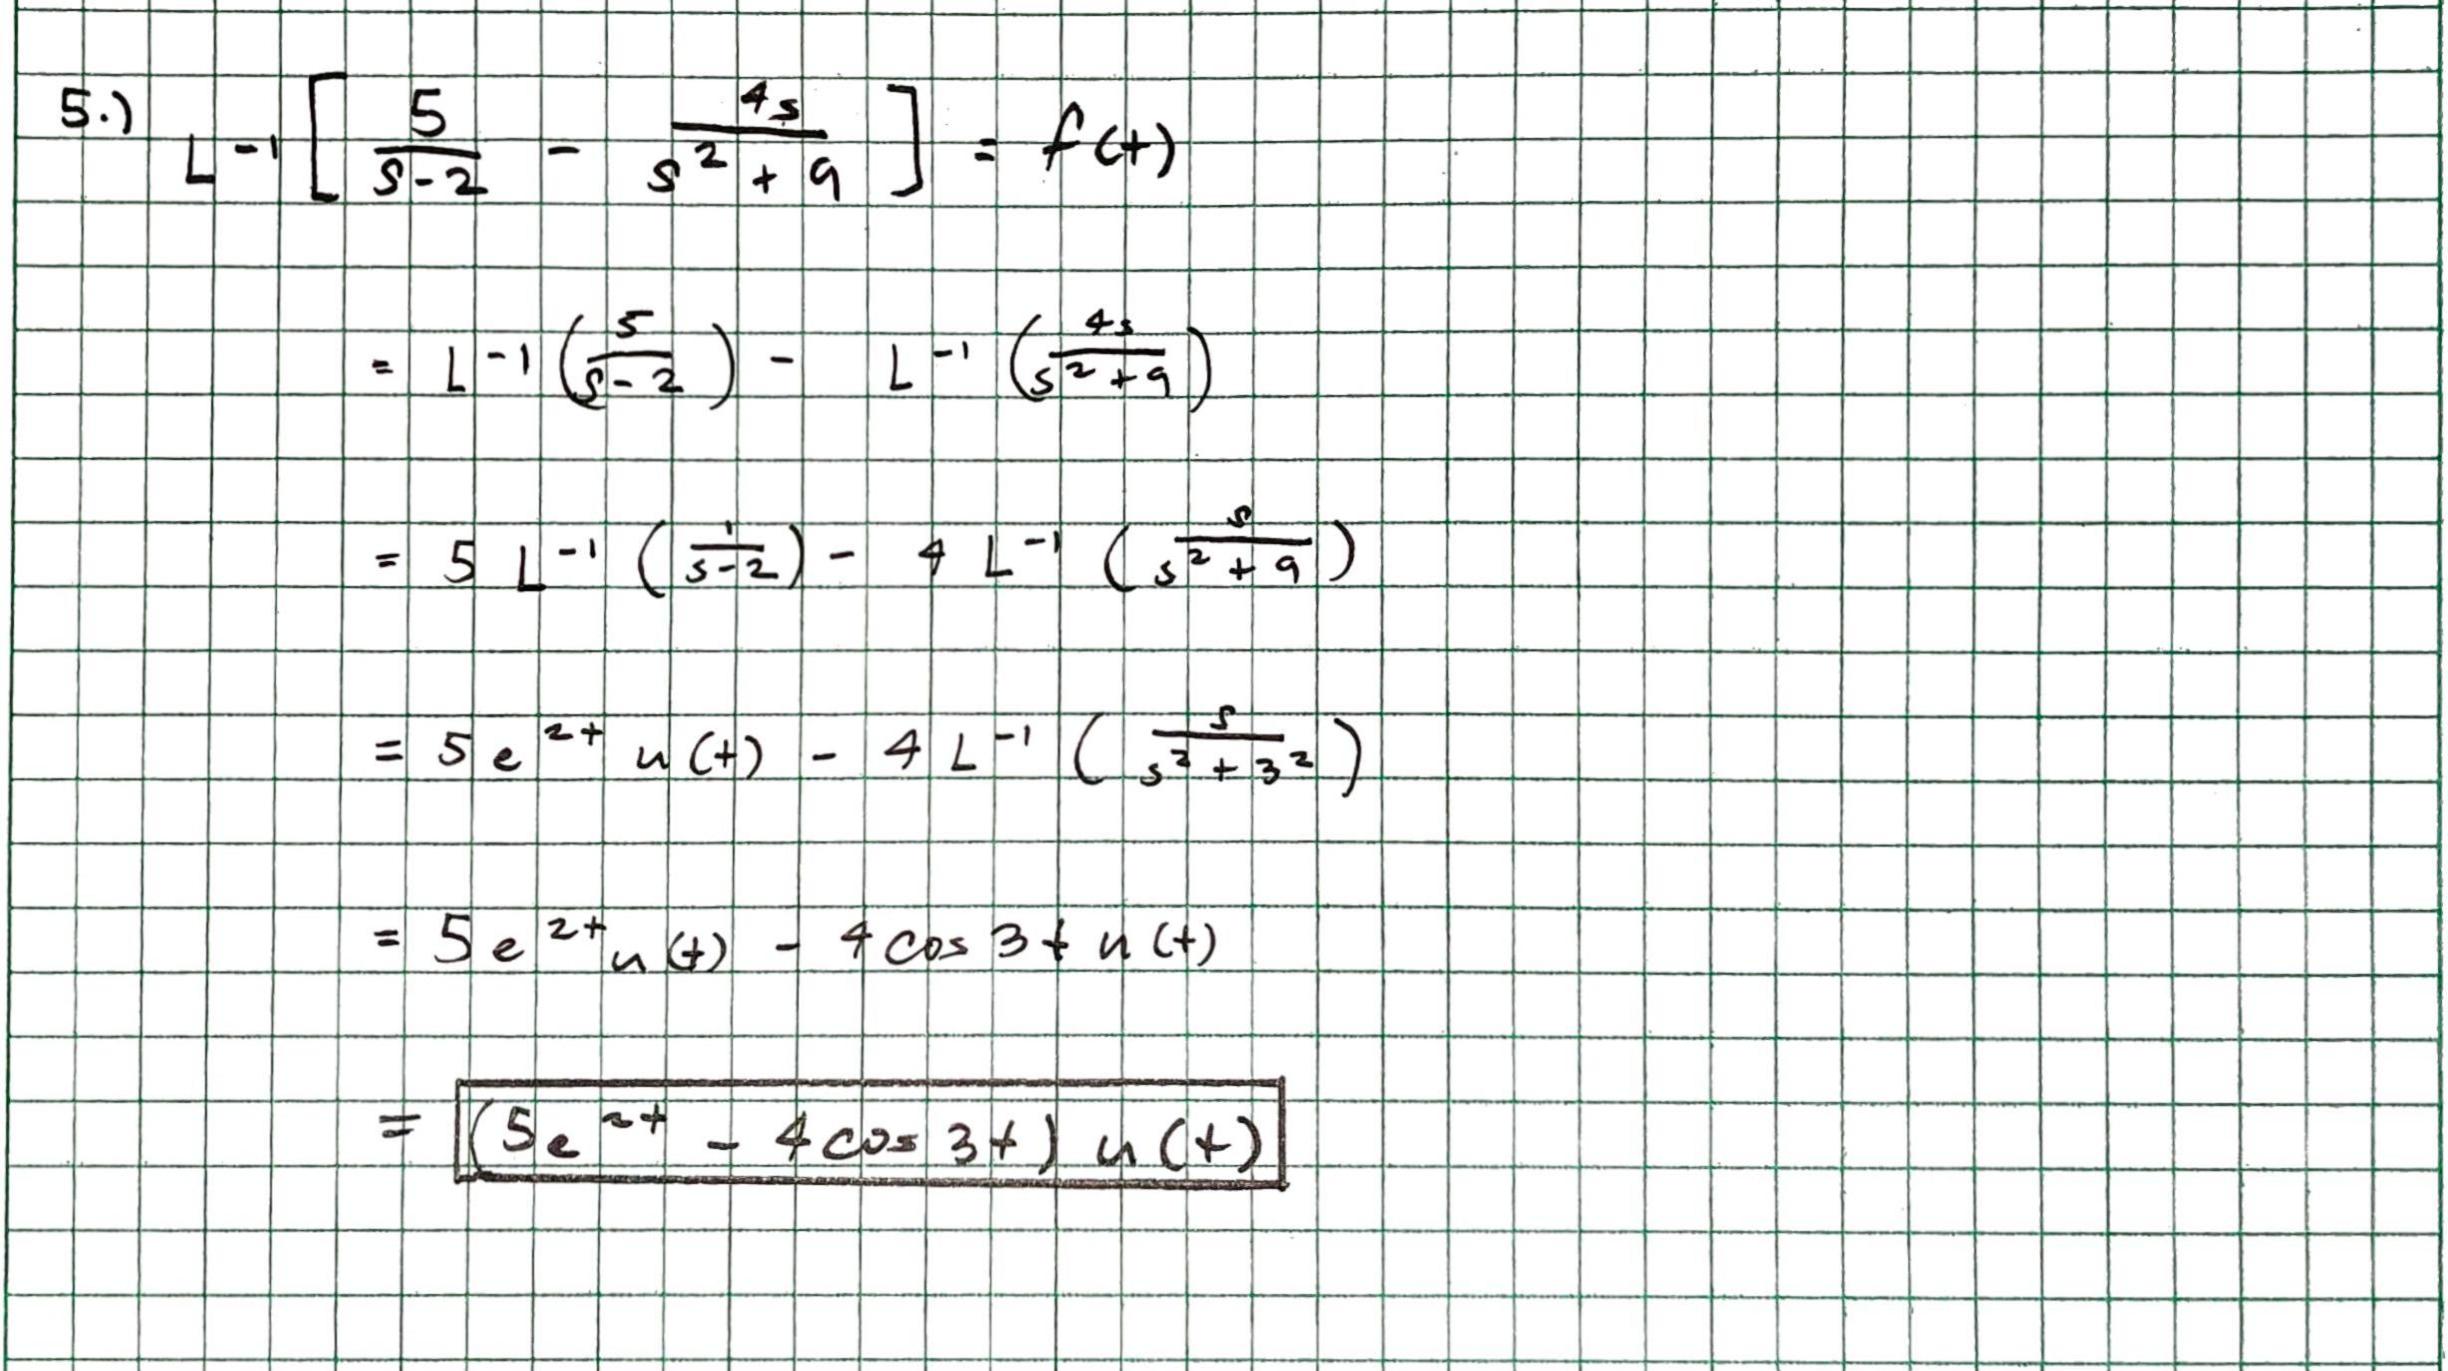 5.) L⁻¹ [ 5/(s-2) - 4s/(s² + 9) ] = f(t)
= L⁻¹ (5/(s-2)) - L⁻¹ (4s/(s² + 9))
= 5 L⁻¹ (1/(s-2)) - 4 L⁻¹ (s/(s² + 9))
= 5e²ᵗ u(t) - 4 L⁻¹ (s/(s² + 3²))
= 5e²ᵗ u(t) - 4 cos 3t u(t)
= (5e²ᵗ - 4 cos 3t) u(t)